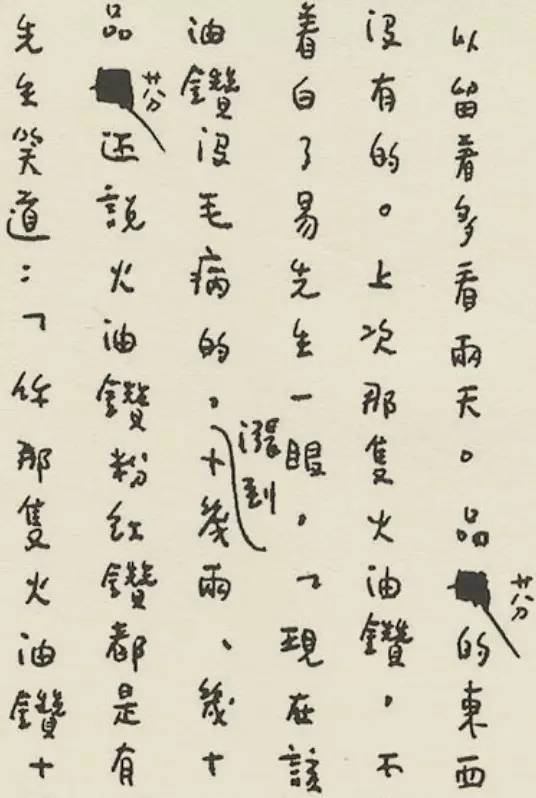 以留着多看兩天。品芬的東西
没有的。上次那隻火油鑽,不
着白了易先生一眼,「現在該
油鑽没毛病的,漲到十幾兩、幾十
品芬还說火油鑽粉红鑽都是有
先生笑道:「你那隻火油鑽十